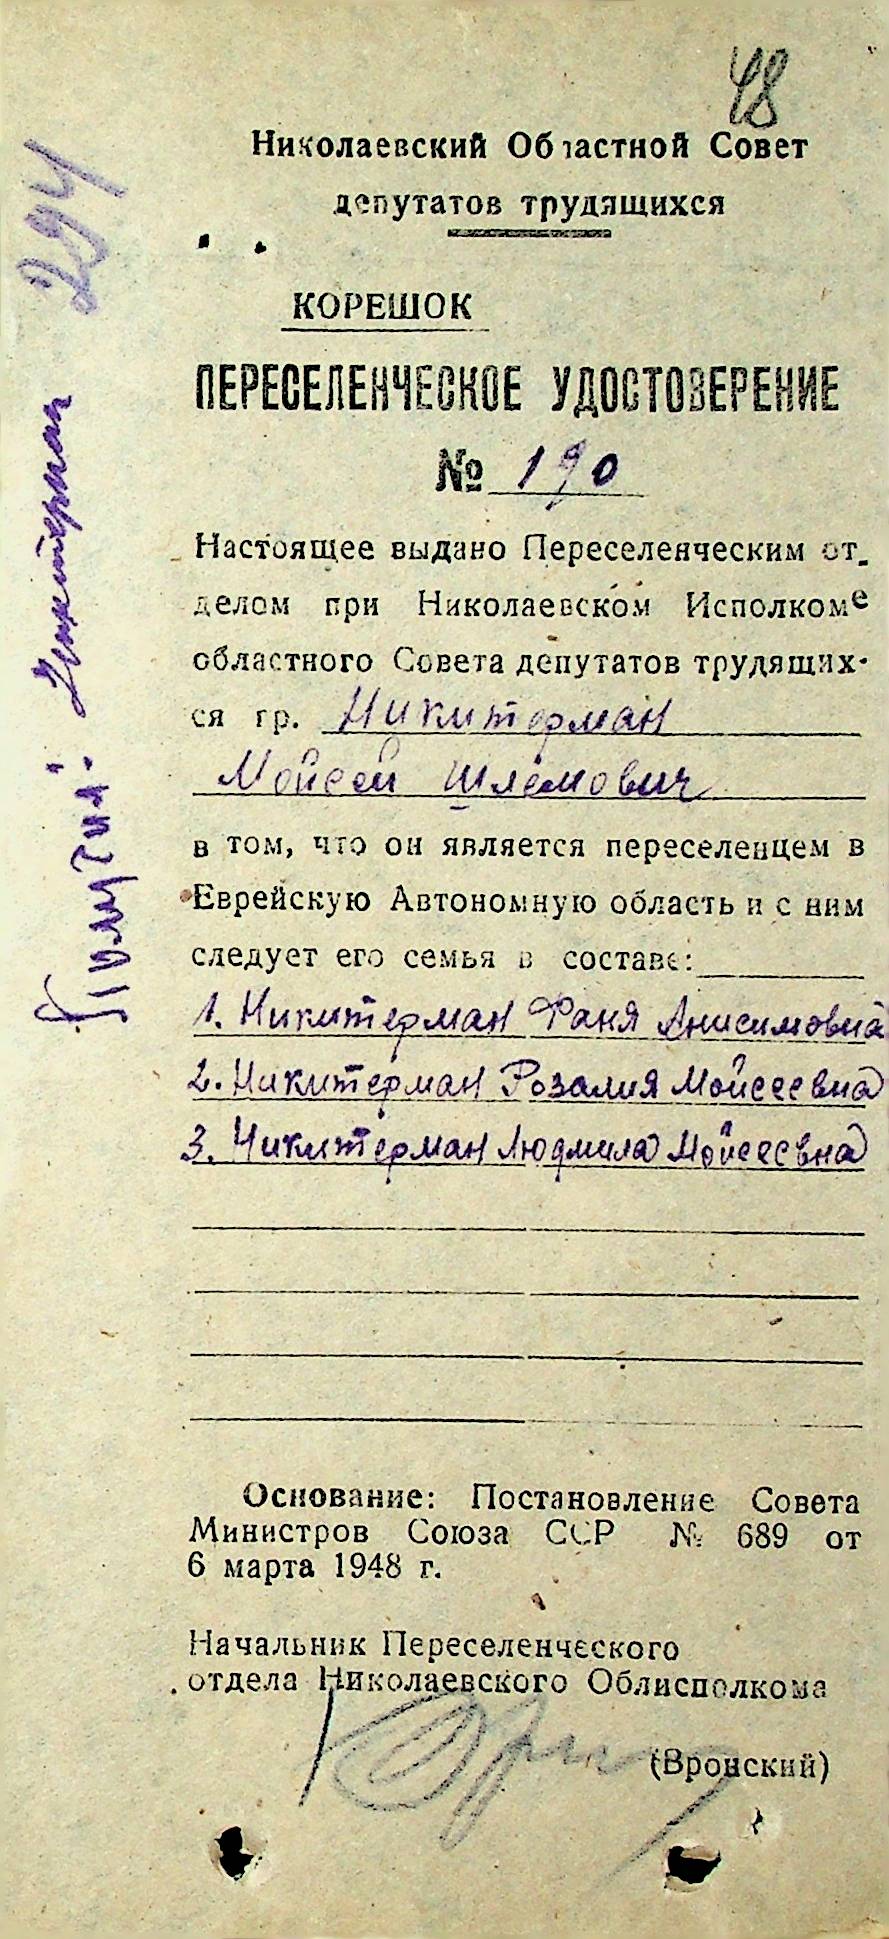 48
Николаевский Областной Совет
депутатов трудящихся
КОРЕШОК
ПЕРЕСЕЛЕНЧЕСКОЕ УДОСТОВЕРЕНИЕ
№ 190
Настоящее выдано Переселенческим от-
делом при Николаевском Исполкоме
областного Совета депутатов трудящих-
ся гр. Никитерман
Мойсей Шлемович
в том, что он является переселенцем в
Еврейскую Автономную область и с ним
следует его семья в составе:
1. Никитерман Фаня Анисимовна
2. Никитерман Розалия Мойсеевна
3. Никитерман Людмила Мойсеевна
Основание: Постановление Совета
Министров Союза ССР № 689 от
6 марта 1948 г.
Начальник Переселенческого
отдела Николаевского Облисполкома
(Вронский)
Получил:
294